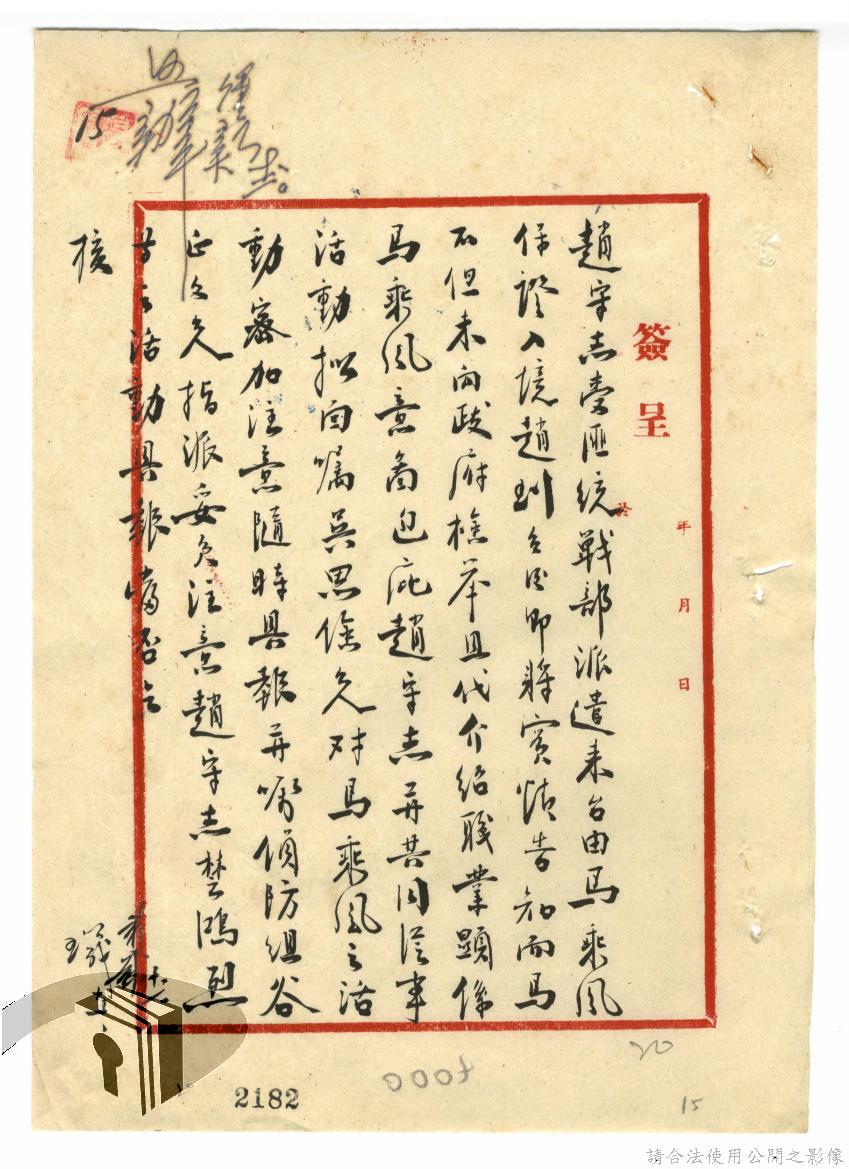 簽呈
於 年 月 日
趙守志受匪統戰部派遣來台由馬乘風
保證入境趙到台後即將實情告知而馬
不但未向政府檢举且代介紹職業顯係
馬乘風意圖包庇趙守志并共同從事
活動拟向囑吳思儉兄对馬乘風之活
動密加注意隨時具報并囑偵防組谷
正文兄指派妥員注意趙守志楚鴻烈
等之活動具報當否乞
核
15
2182
4000
20
15
請合法使用公開之影像